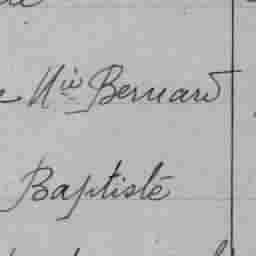 Mie Bernard
Baptiste